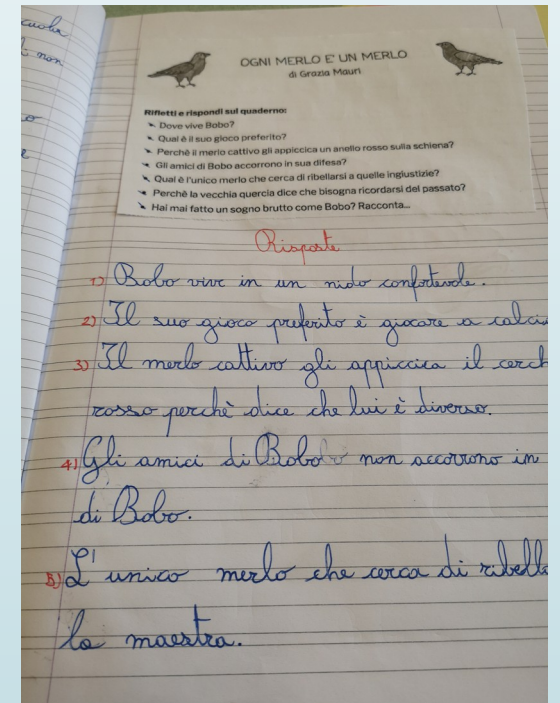 cuola
non
OGNI MERLO E' UN MERLO
di Grazia Mauri
Rifletti e rispondi sul quaderno:
Dove vive Bobo?
Qual è il suo gioco preferito?
Perchè il merlo cattivo gli appiccica un anello rosso sulla schiena?
Gli amici di Bobo accorrono in sua difesa?
Qual è l'unico merlo che cerca di ribellarsi a quelle ingiustizie?
Perchè la vecchia quercia dice che bisogna ricordarsi del passato?
Hai mai fatto un sogno brutto come Bobo? Racconta...
Risposte
1) Bobo vive in un nido confortevole.
2) Il suo gioco preferito è giocare a calci
3) Il merlo cattivo gli appiccica il cerch
rosso perchè dice che lui è diverso.
4) Gli amici di Bobo non accorrono in
di Bobo.
5) L'unico merlo che cerca di ribell
la maestra.